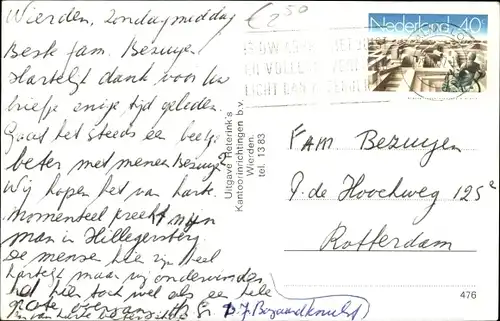 Wierden, Zondagmiddag
Beste fam. Bezuyen
Hartelijk dank voor Uw
briefje enige tijd geleden.
Gaat het steeds een beetje
beter met meneer Bezuyen?
Wij hopen het van harte.
momenteel preekt mijn
man in Hillegersberg.
De mensen hier zijn heel
hartelijk maar wij ondervinden
het hier toch wel als een hele
grote overgang.
van harte
€ 2 50
Uitgave Reterink's
Kantoorinrichtingen b.v.
Wierden
tel. 13 83
Nederland 40c
Fam Bezuyen
P. de Hoochweg 125c
Rotterdam
476